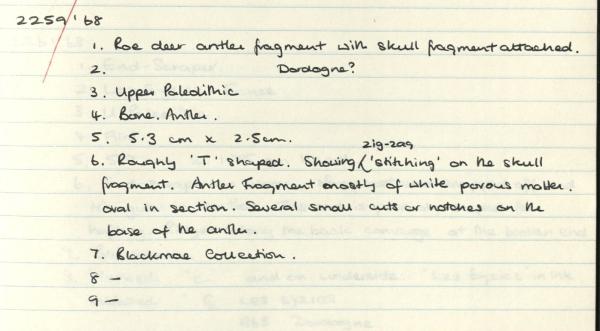 2259'68
1. Roe deer antler fragment with skull fragment attached.
2. Dordogne?
3. Upper Paleolithic
4. Bone. Antler.
5. 5.3 cm x 2.5cm.
zig-zag
6. Roughly 'T' shaped. Showing ( 'stitching' on the skull
fragment. Antler Fragment mostly of white porous matter.
oval in section. Several small cuts or notches on the
base of the antler.
7. Blackmore Collection.
8 —
9 —